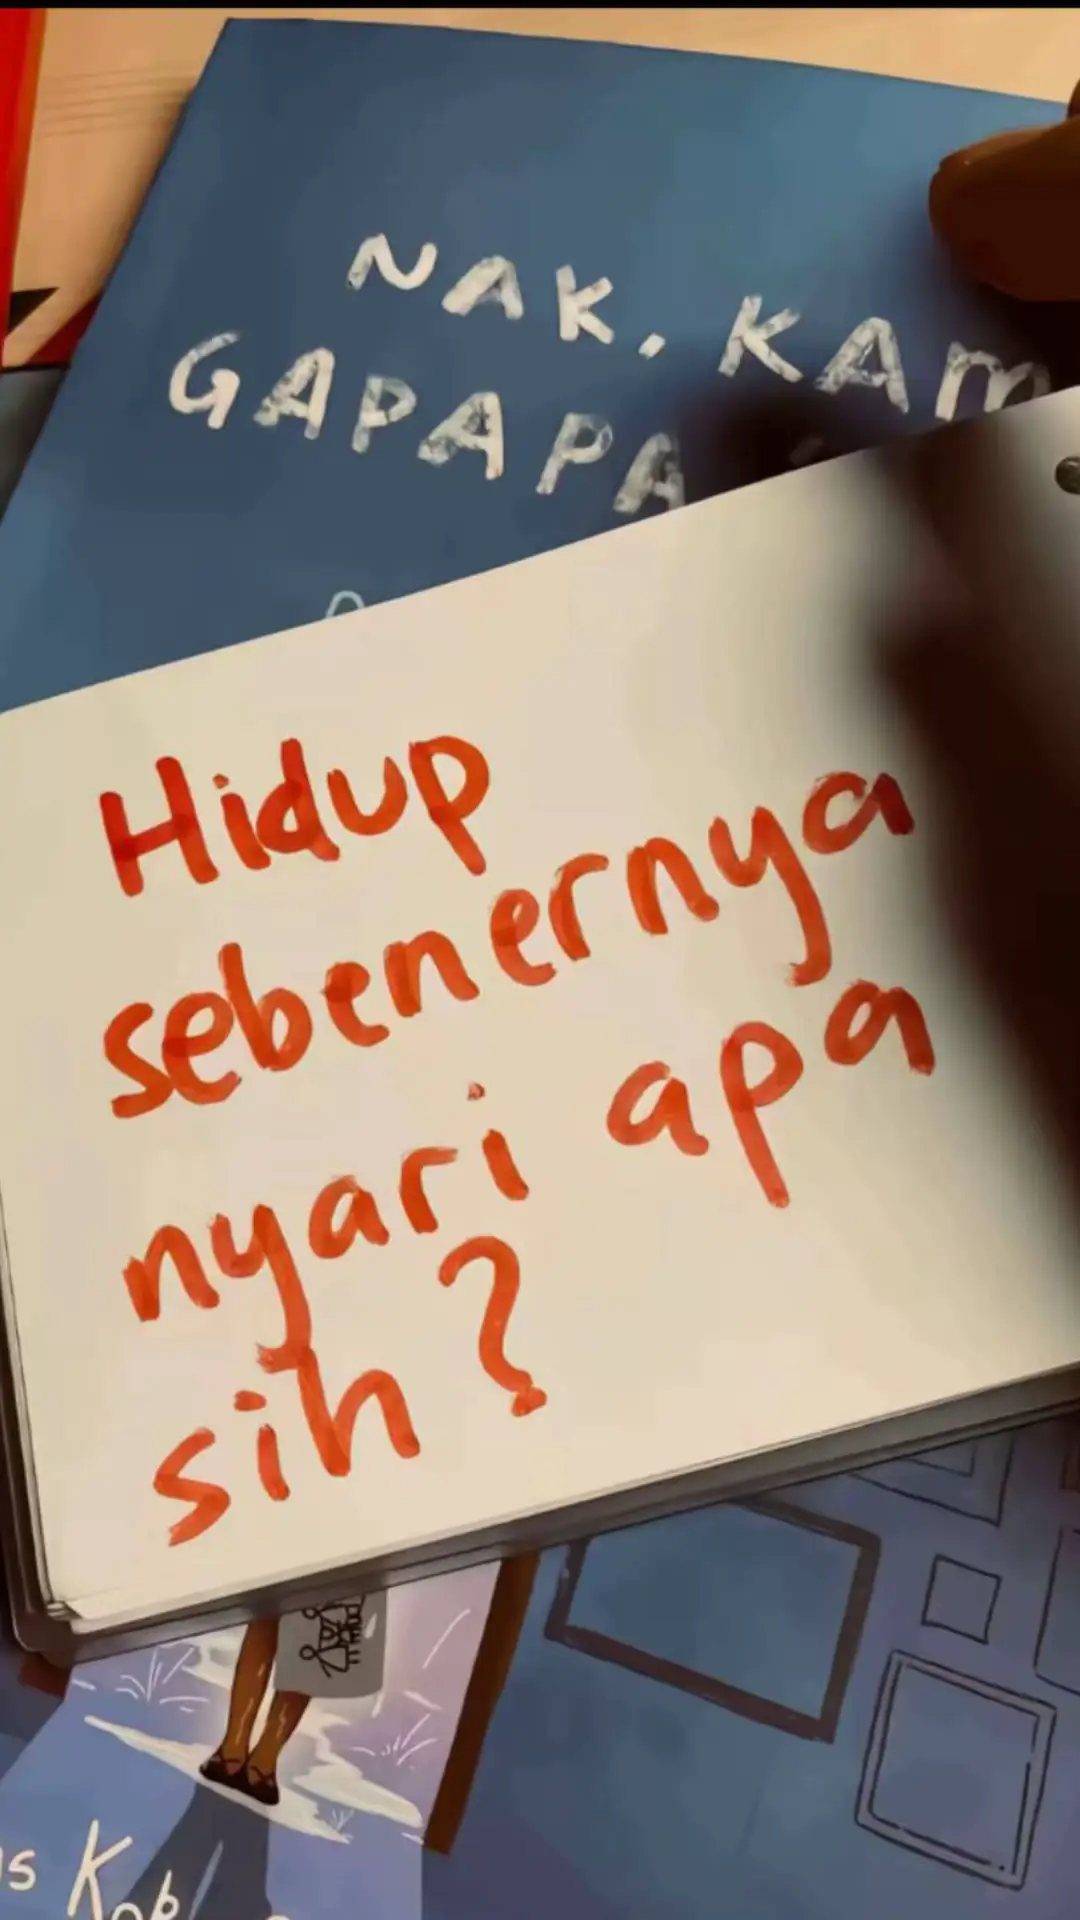 NAK, KAM
GAPAPA
Hidup
sebenernya
nyari apa
sih?